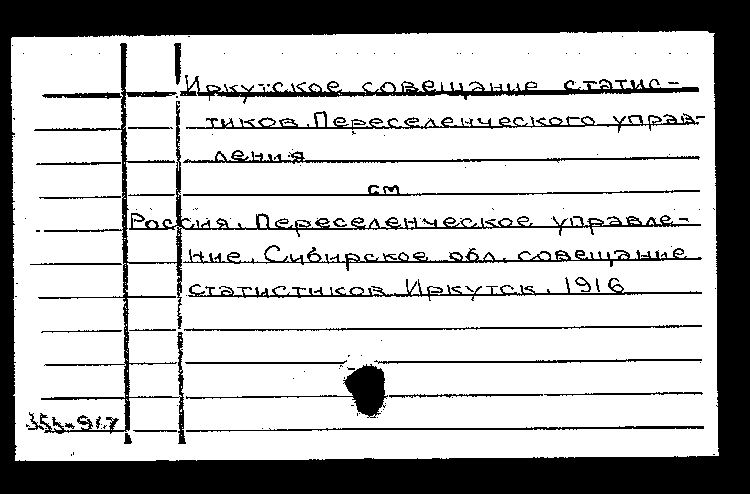 Иркутское совещание статис-
тиков Переселенческого управ-
ления
см
Россия. Переселенческое управле-
ние. Сибирское обл. совещание
статистиков. Иркутск. 1916